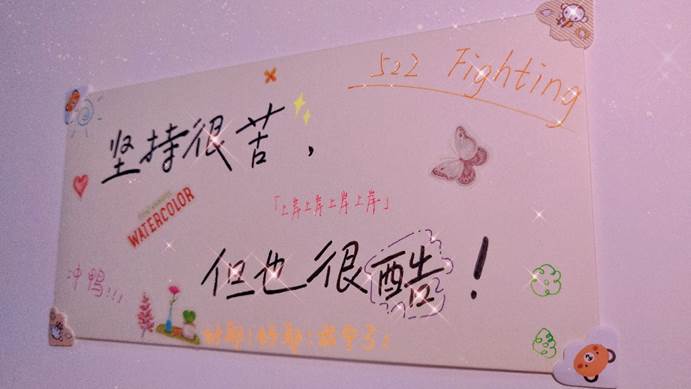 522 Fighting
坚持很苦，
WATERCOLOR
「上岸上岸上岸上岸」
但也很酷！
冲鸭!!!